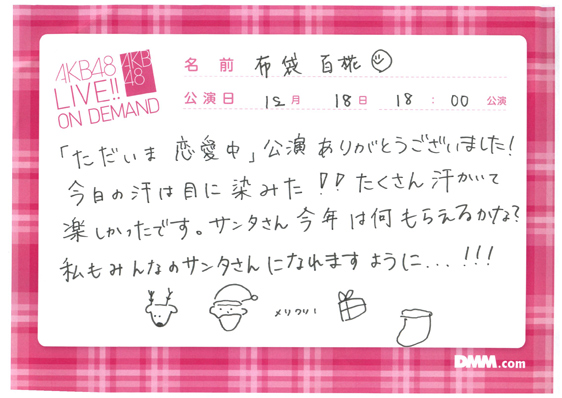 AKB48
LIVE!!
ON DEMAND
AKB
48
名前 布袋 百椛
公演日 12月 18日 18:00 公演
「ただいま 恋愛中」公演 ありがとうございました!
今日の汗は目に染みた!! たくさん 汗かいて
楽しかったです。サンタさん 今年は何もらえるかな?
私もみんなのサンタさんになれますように...!!!
メリクリ!
DMM.com